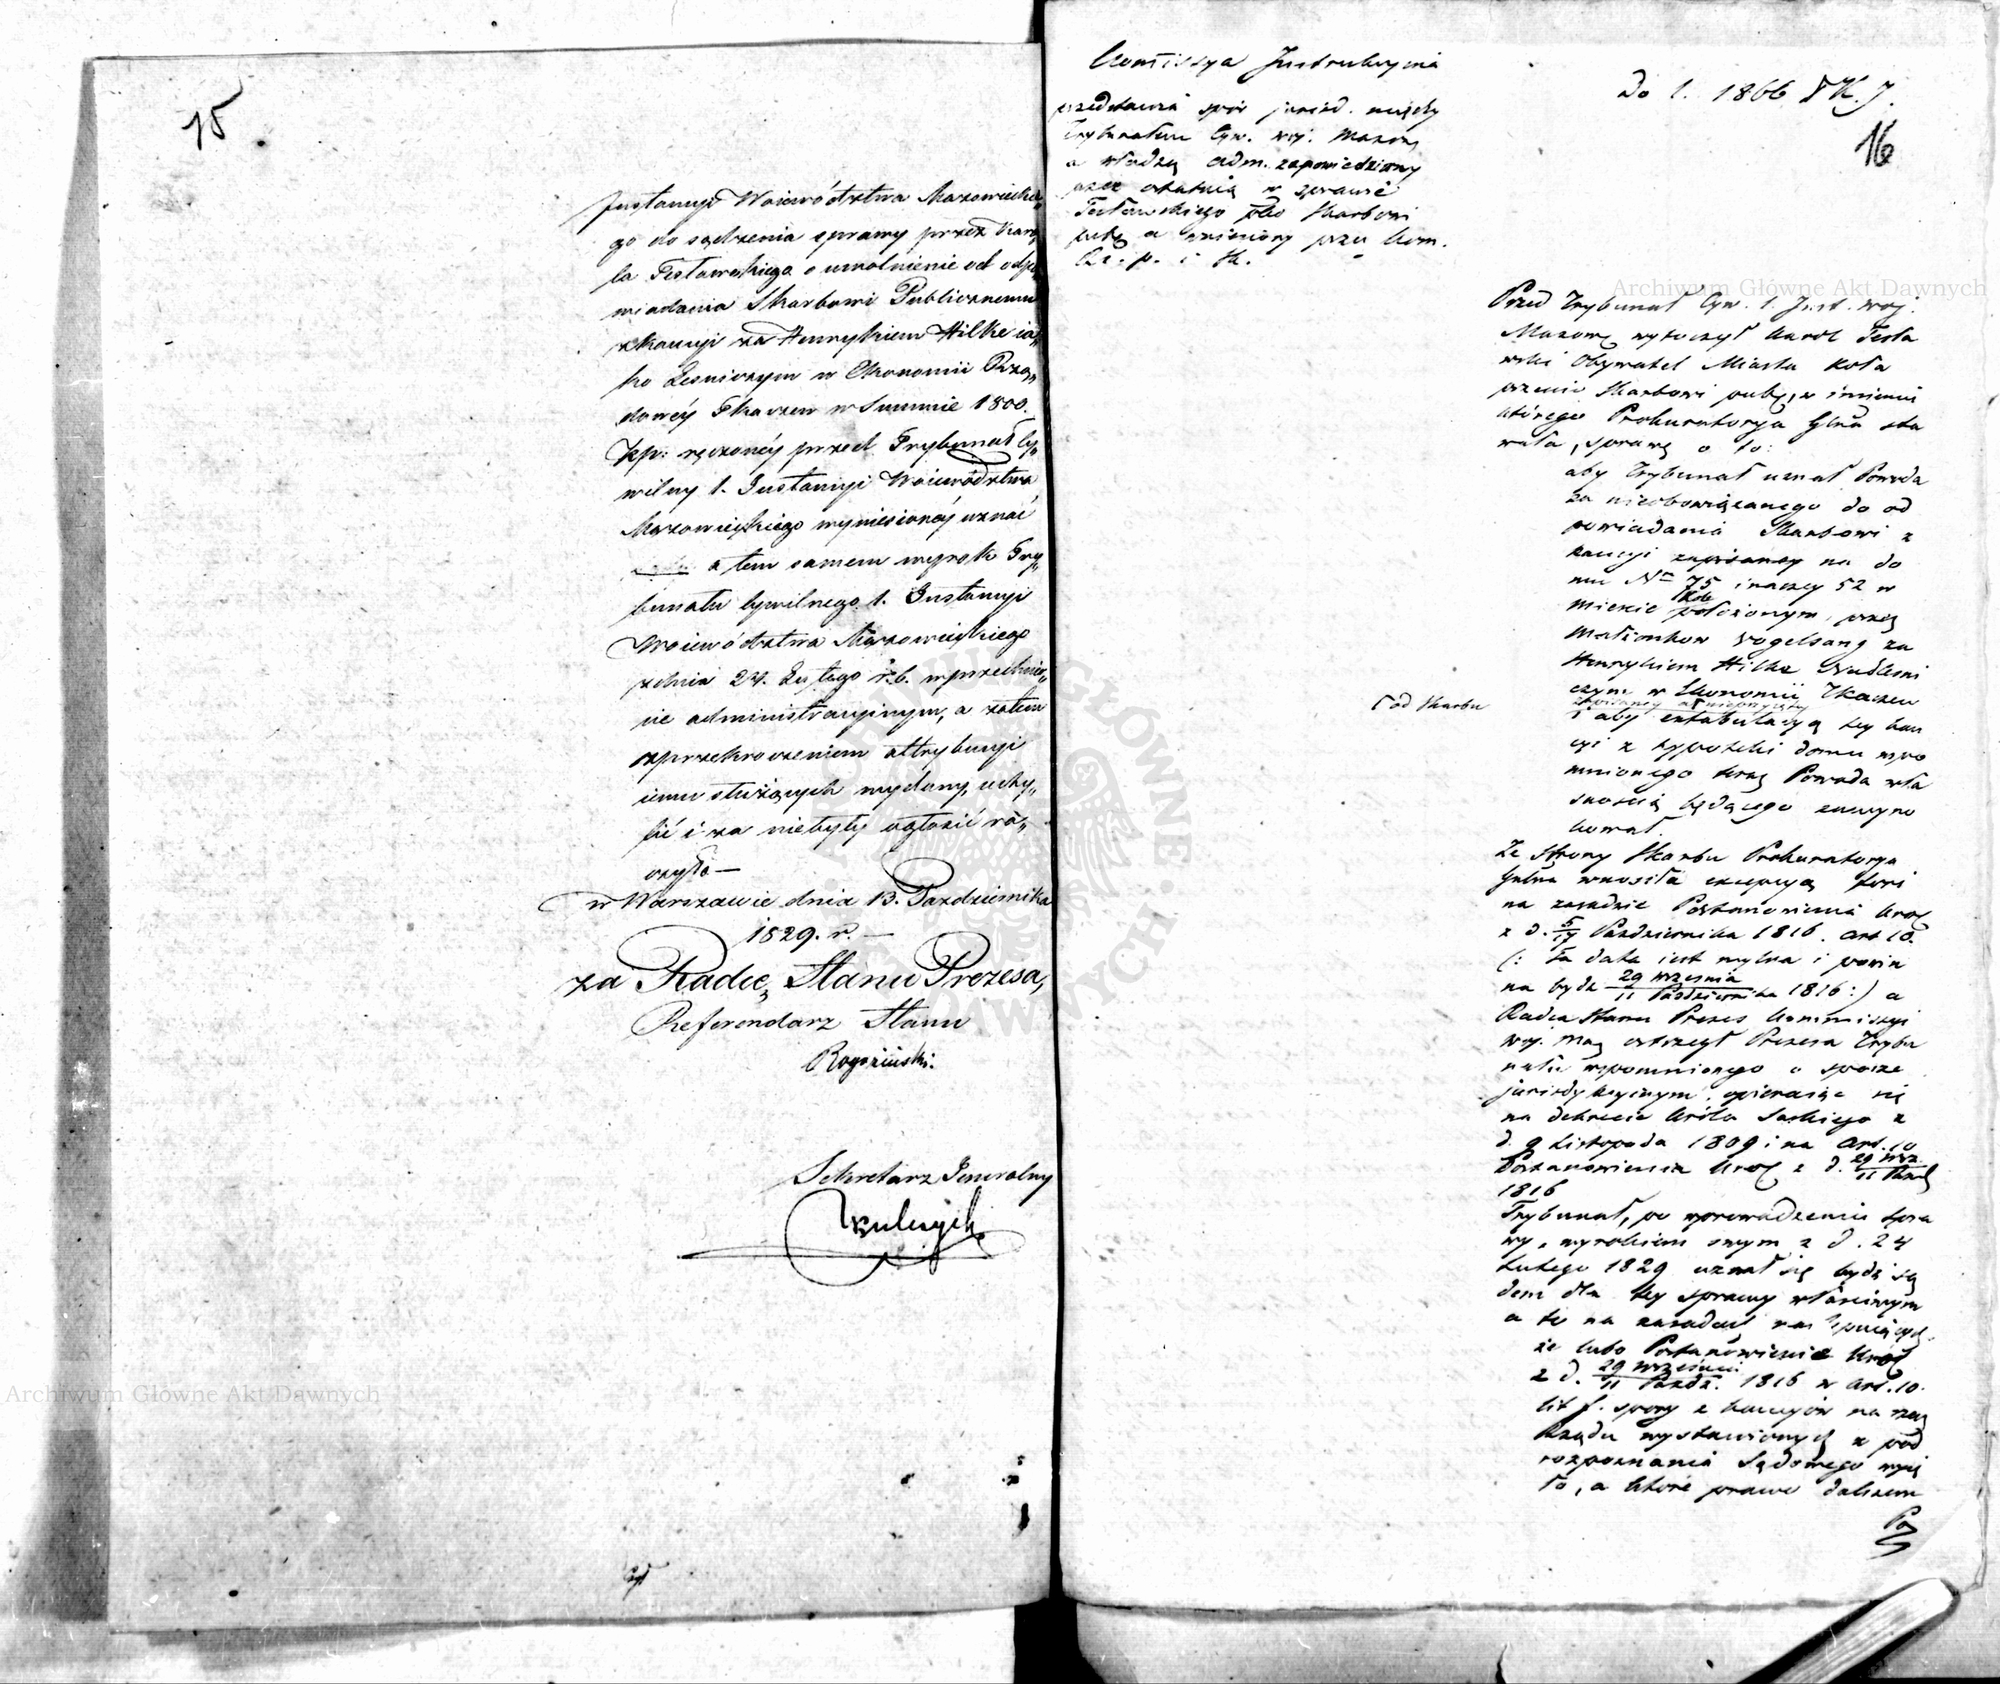 15
Instancyi Woiewództwa Mazowieckie„
go do sądzenia sprawy przez Karo„
la Testawskiego o uwolnienie od odpo„
wiadania Skarbowi Publicznemu
z kaucyi za Henrykiem Hilke ia„
ko Leśniczym w Ekonomii Rzą„
dowéy Tkaczew w Summie 1800.
Złp: ręczonéy przed Trybunał Cy„
wilny 1. Instancyi Woiewództwa
Mazowieckiego wyniesionéy uznać
a tem samem wyrok Try„
bunału Cywilnego 1. Instancyi
Woiewództwa Mazowieckiego
z dnia 24. Lutego r. b. w przedmio„
cie administracyinym, a zatem
z przekroczeniem attrybucyi
iemu służących wydany, uchy„
lić i za niebyły ogłosić ra„
czyła —
w Warszawie dnia 13. Października
1829. r. —
za Radcę Stanu Prezesa,
Referendarz Stanu
Rogoziński.
Sekretarz Jeneralny
Kommissya Instrukcyina
przedstawia spór jurisd. między
Trybunałem Cyw. woj. Mazow.
a władzą adm. zapowiedziany
przez ostatnią w sprawie
Testawskiego pko Skarbowi
pub. a wniesiony przez Kom.
Rz. p. i Sk.
Do l. 1866 K. J.
16
Przed Trybunał Cyw. 1. Inst. woj.
Mazow. wytoczył Karol Testa
wski Obywatel Miasta Koła
przeciw Skarbowi pub., w imieniu
którego Prokuratorya Glna sta
wała, sprawę o to:
aby Trybunał uznał Powoda
za nieobowiązanego do od
powiadania Skarbowi z
kaucyi zapisaney na do
mu Nm 75 inaczey 52 w
mieście Kole położonym, przez
Małżonków Vogelsang za
Henrykiem Hilke Nadleśni
czym w Ekonomii Tkaczew
i aby extabulacyą tey kau
cyi z hypoteki domu wspo
mnionego teraz Powoda wła
snością będącego zawyro
kował.
od Skarbu
Ze strony Skarbu Prokuratorya
Jlna wnosiła excepcyą fori
na zasadzie Postanowienia Król
z d. 5/17 Października 1816. art 10.
(: ta data iest mylna i powin
na bydź 29 września / 11 Października 1816 :) a
Radca Stanu Prezes Kommissyi
woj. Maz ostrzegł Prezesa Trybu
nału wspomnionego o sporze
jurisdykcyinym, opieraiąc się
na dekrecie Króla Saskiego z
d. 9 Listopada 1809 i na Art. 10
Postanowienia Król z d. 29 Wrz. / 11 Paźd
1816
Trybunał, po wprowadzeniu spra
wy, wyrokiem swym z d. 24
Lutego 1829 uznał się bydź są
dem dla tey sprawy właściwym
a to na zasadach następuiących,
że lubo Postanowienie Król
z d. 29 września / 11 Paźdz. 1816 w art. 10.
lit f. spory z kaucyów na rzecz
Rządu wystawionych z pod
rozpoznania Sądowego wyię
ło, a które prawo dalszem
Archiwum Główne Akt Dawnych
Archiwum Główne Akt Dawnych